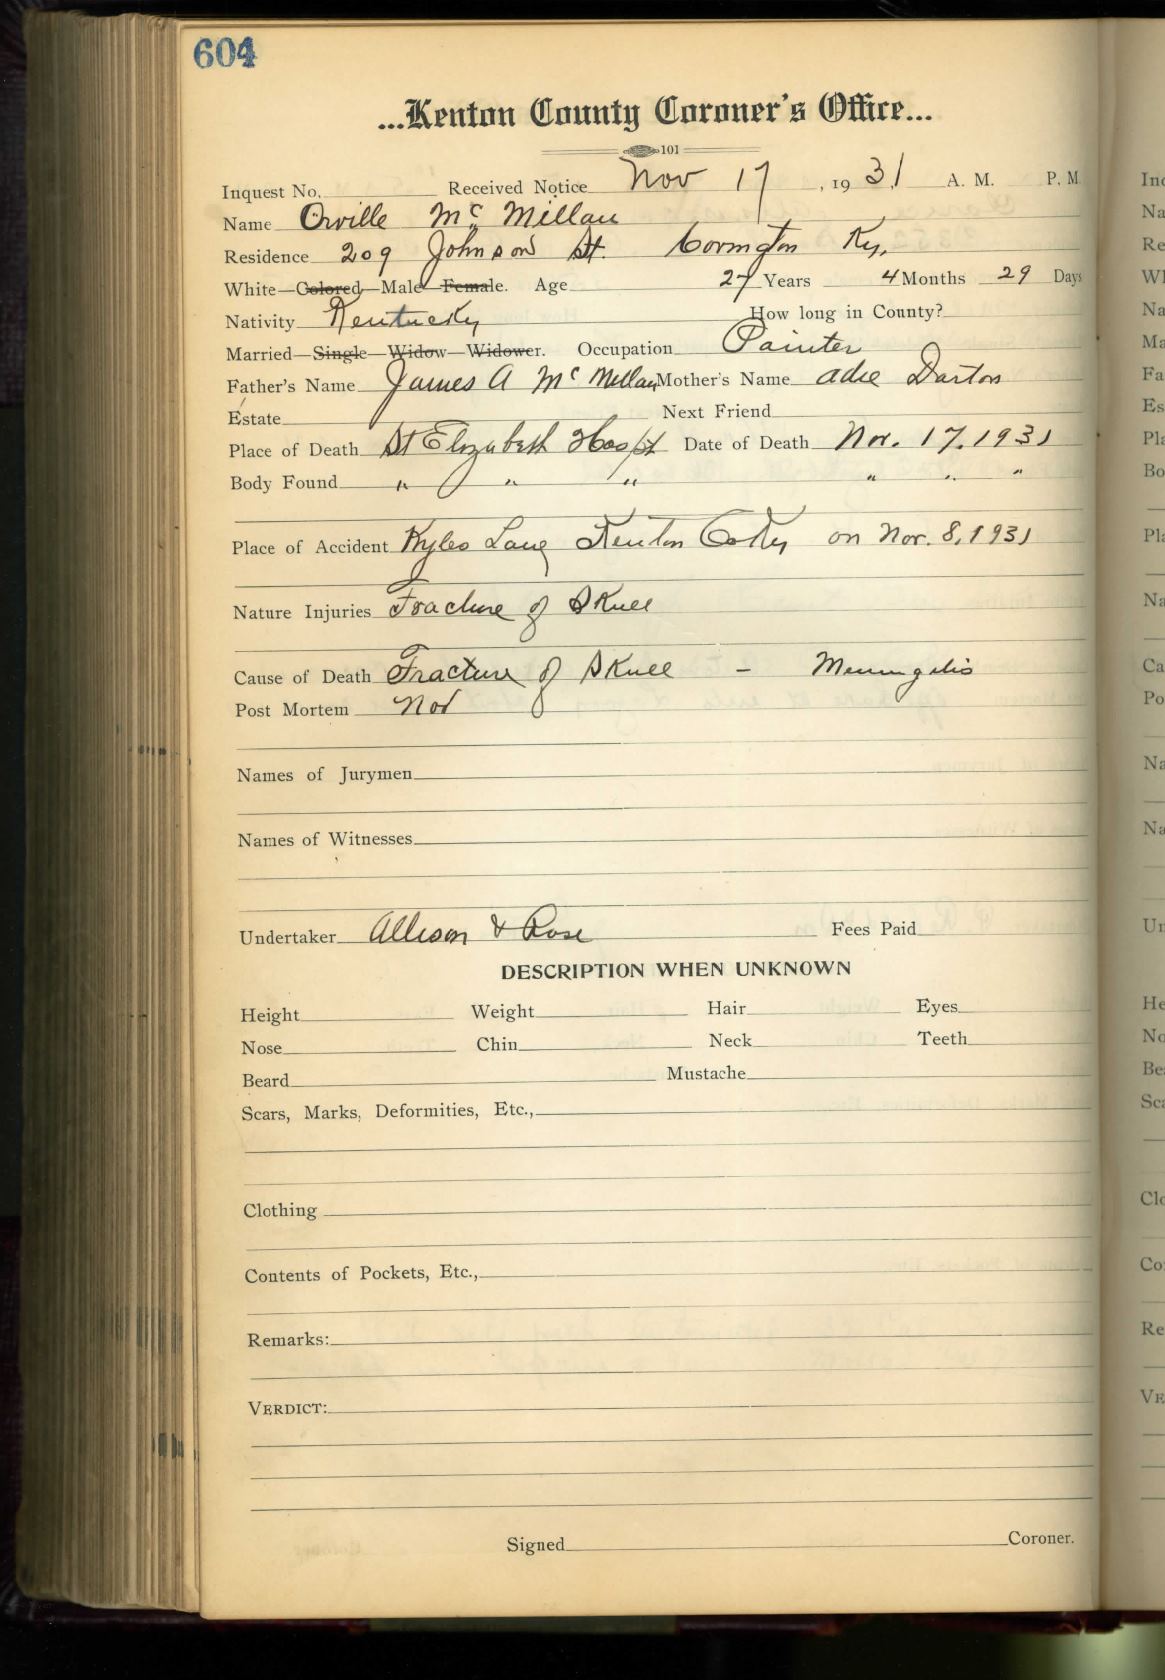 604
...Kenton County Coroner's Office...
101
Inquest No. Received Notice Nov 17, 1931 A. M. P. M
Name Orville Mc Millan
Residence 209 Johnson St. Covington Ky.
White—Colored—Male—Female. Age 27 Years 4 Months 29 Days
Nativity Kentucky How long in County?
Married—Single—Widow—Widower. Occupation Painter
Father's Name James A Mc Millan Mother's Name Adie Darton
Estate Next Friend
Place of Death St Elizabeth Hospt Date of Death Nov. 17, 1931
Body Found " " " " " "
Place of Accident Kyles Lane Kenton Co Ky on Nov. 8, 1931
Nature Injuries Fracture of Skull
Cause of Death Fracture of Skull - Meningitis
Post Mortem
Names of Jurymen
Names of Witnesses
Undertaker Allison & Rose Fees Paid
DESCRIPTION WHEN UNKNOWN
Height Weight Hair Eyes
Nose Chin Neck Teeth
Beard Mustache
Scars, Marks, Deformities, Etc.,
Clothing
Contents of Pockets, Etc.,
Remarks:
VERDICT:
Signed Coroner.